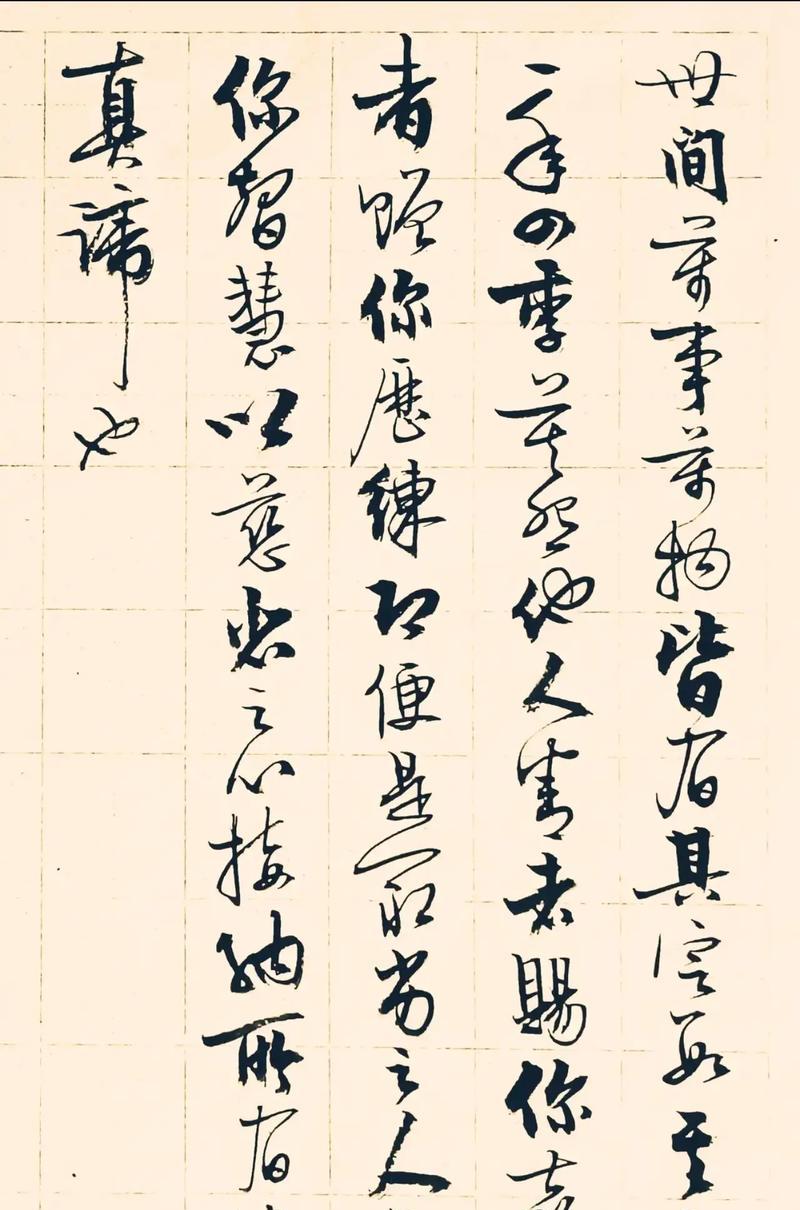 世間萬事萬物皆有其定數至
一年四季莫怨他人善者賜你
者贈你歷練即便是最劣之人
你智慧以慈悲之心接納所有
真諦也